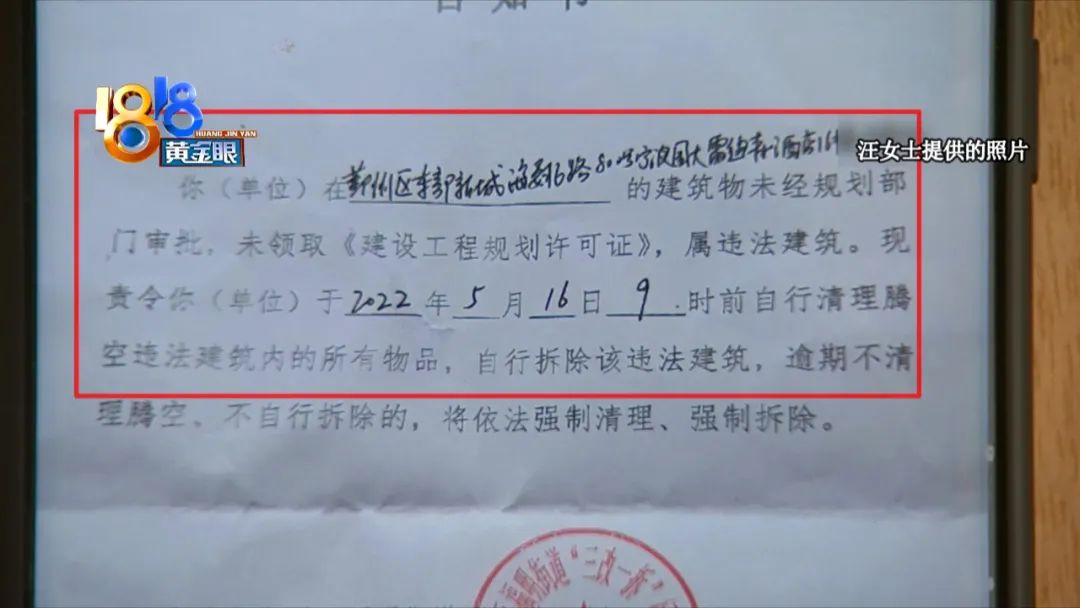 告知书
1818
HUANG JIN YAN
黄金眼
汪女士提供的照片
你（单位）在鄞州区东部新城海晏北路80号宁波国大雷迪森酒店
的建筑物未经规划部
门审批，未领取《建设工程规划许可证》，属违法建筑。现
责令你（单位）于2022年5月16日9时前自行清理腾
空违法建筑内的所有物品，自行拆除该违法建筑，逾期不清
理腾空、不自行拆除的，将依法强制清理、强制拆除。
明街道“三改一拆”